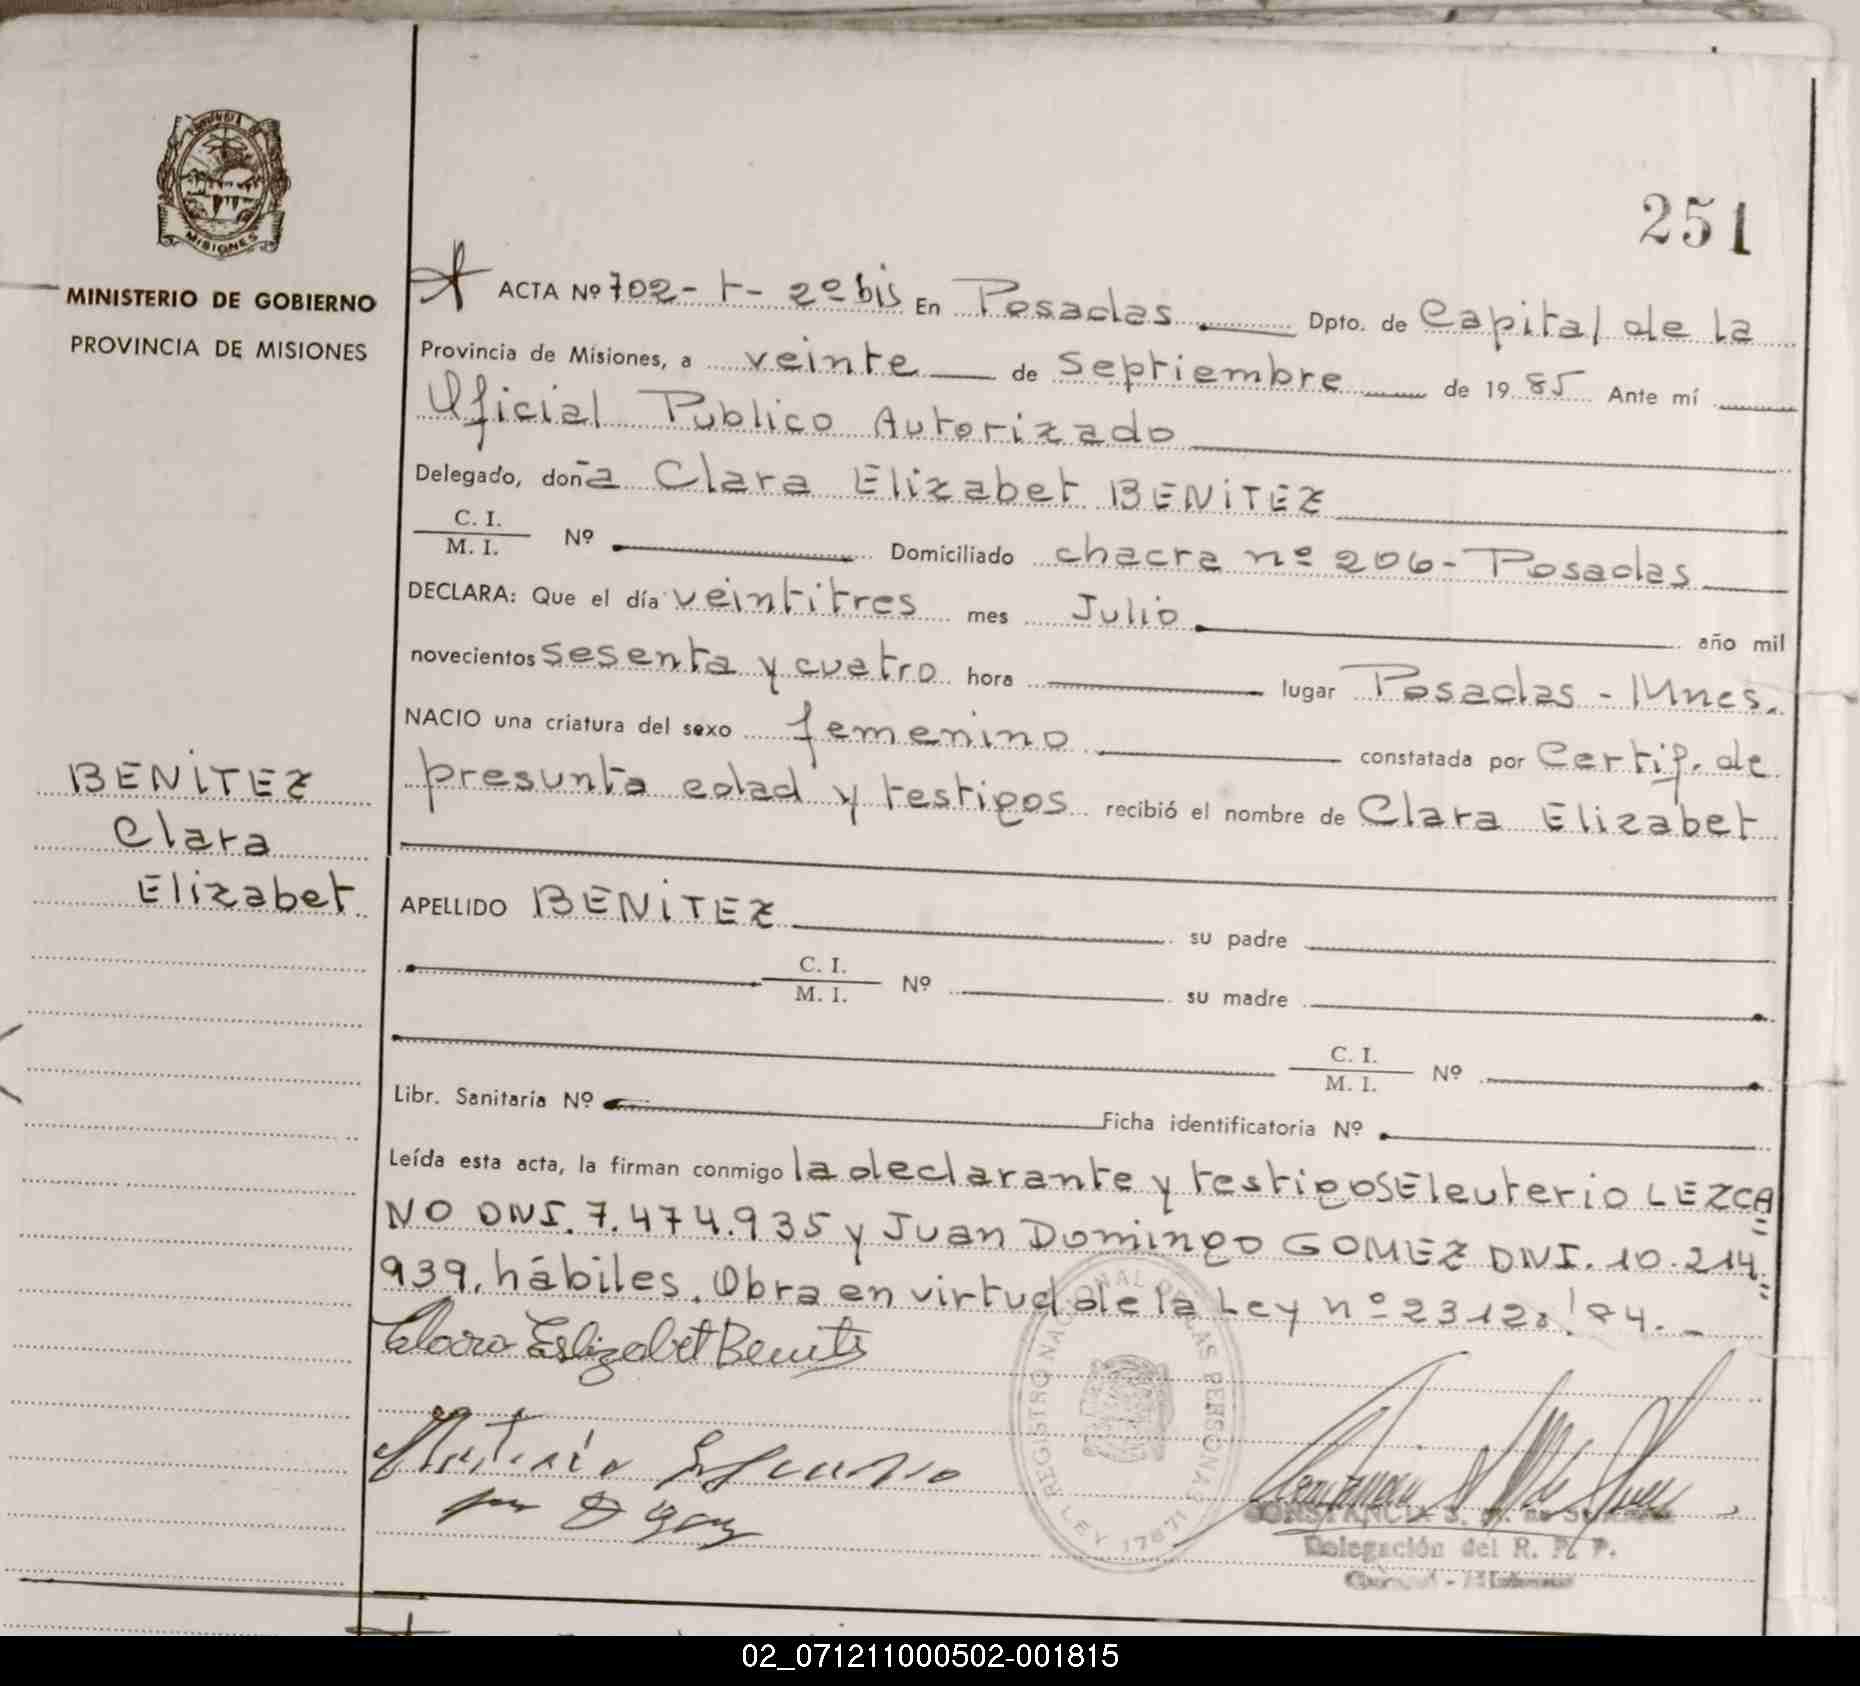 PROVINCIA DE
MISIONES
MINISTERIO DE GOBIERNO
PROVINCIA DE MISIONES
BENITEZ
Clara
Elizabet
251
ACTA Nº 702 - t - 2º bis En Posadas Dpto. de Capital de la
Provincia de Misiones, a veinte de septiembre de 1985 Ante mí
Oficial Publico Autorizado
Delegado, doña Clara Elizabet BENITEZ
C. I.
M. I. Nº Domiciliado chacra nº 206 - Posadas
DECLARA: Que el día veintitres mes Julio año mil
novecientos sesenta y cuatro hora lugar Posadas - Mnes.
NACIO una criatura del sexo femenino constatada por Certif. de
presunta edad y testigos recibió el nombre de Clara Elizabet
APELLIDO BENITEZ su padre
C. I.
M. I. Nº su madre
C. I.
M. I. Nº
Libr. Sanitaria Nº Ficha identificatoria Nº
Leída esta acta, la firman conmigo la declarante y testigos Eleuterio LEZCA=
NO DNI. 7.474.935 y Juan Domingo GOMEZ DNI. 10.214.=
939, hábiles. Obra en virtud de la Ley nº 23128/84. -
Clara Eslizabet Benits
REGISTRO NACIONAL DE LAS PERSONAS
LEY 17671
CONSTANCIA S.
Delegación del R. P. P.
02_071211000502-001815